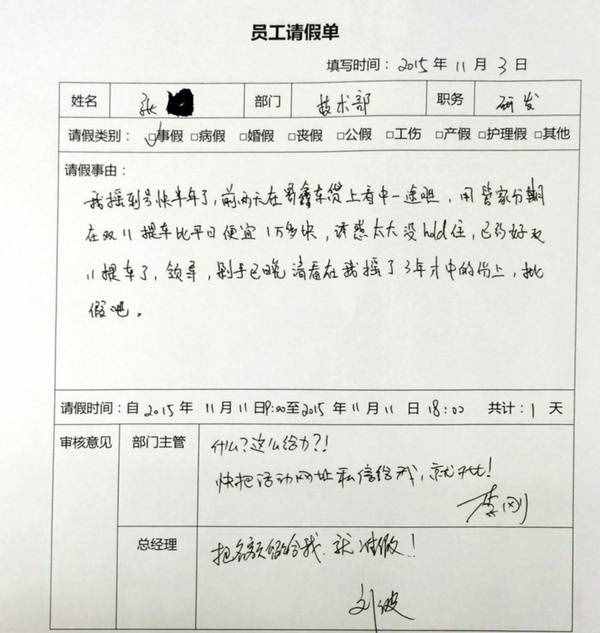 员工请假单
填写时间：2015 年 11 月 3 日
姓名 张 部门 技术部 职务 研发
请假类别：□事假 □病假 □婚假 □丧假 □公假 □工伤 □产假 □护理假 □其他
请假事由：
我摇到号快半年了，前两天在易鑫车贷上看中一途胆，用管家分期
在双11提车比平日便宜1万多块，诱惑太大没hold住，已约好双
11提车了，领导，剁手已晚请看在我摇了3年才中的份上，批
假吧。
请假时间：自 2015 年 11 月 11 日 9:00 至 2015 年 11 月 11 日 18:00 共计：1 天
审核意见 部门主管 什么？这么给力？！
快把活动网址私信给我，就批！
李刚
总经理 把名额留给我，就准假！
刘波